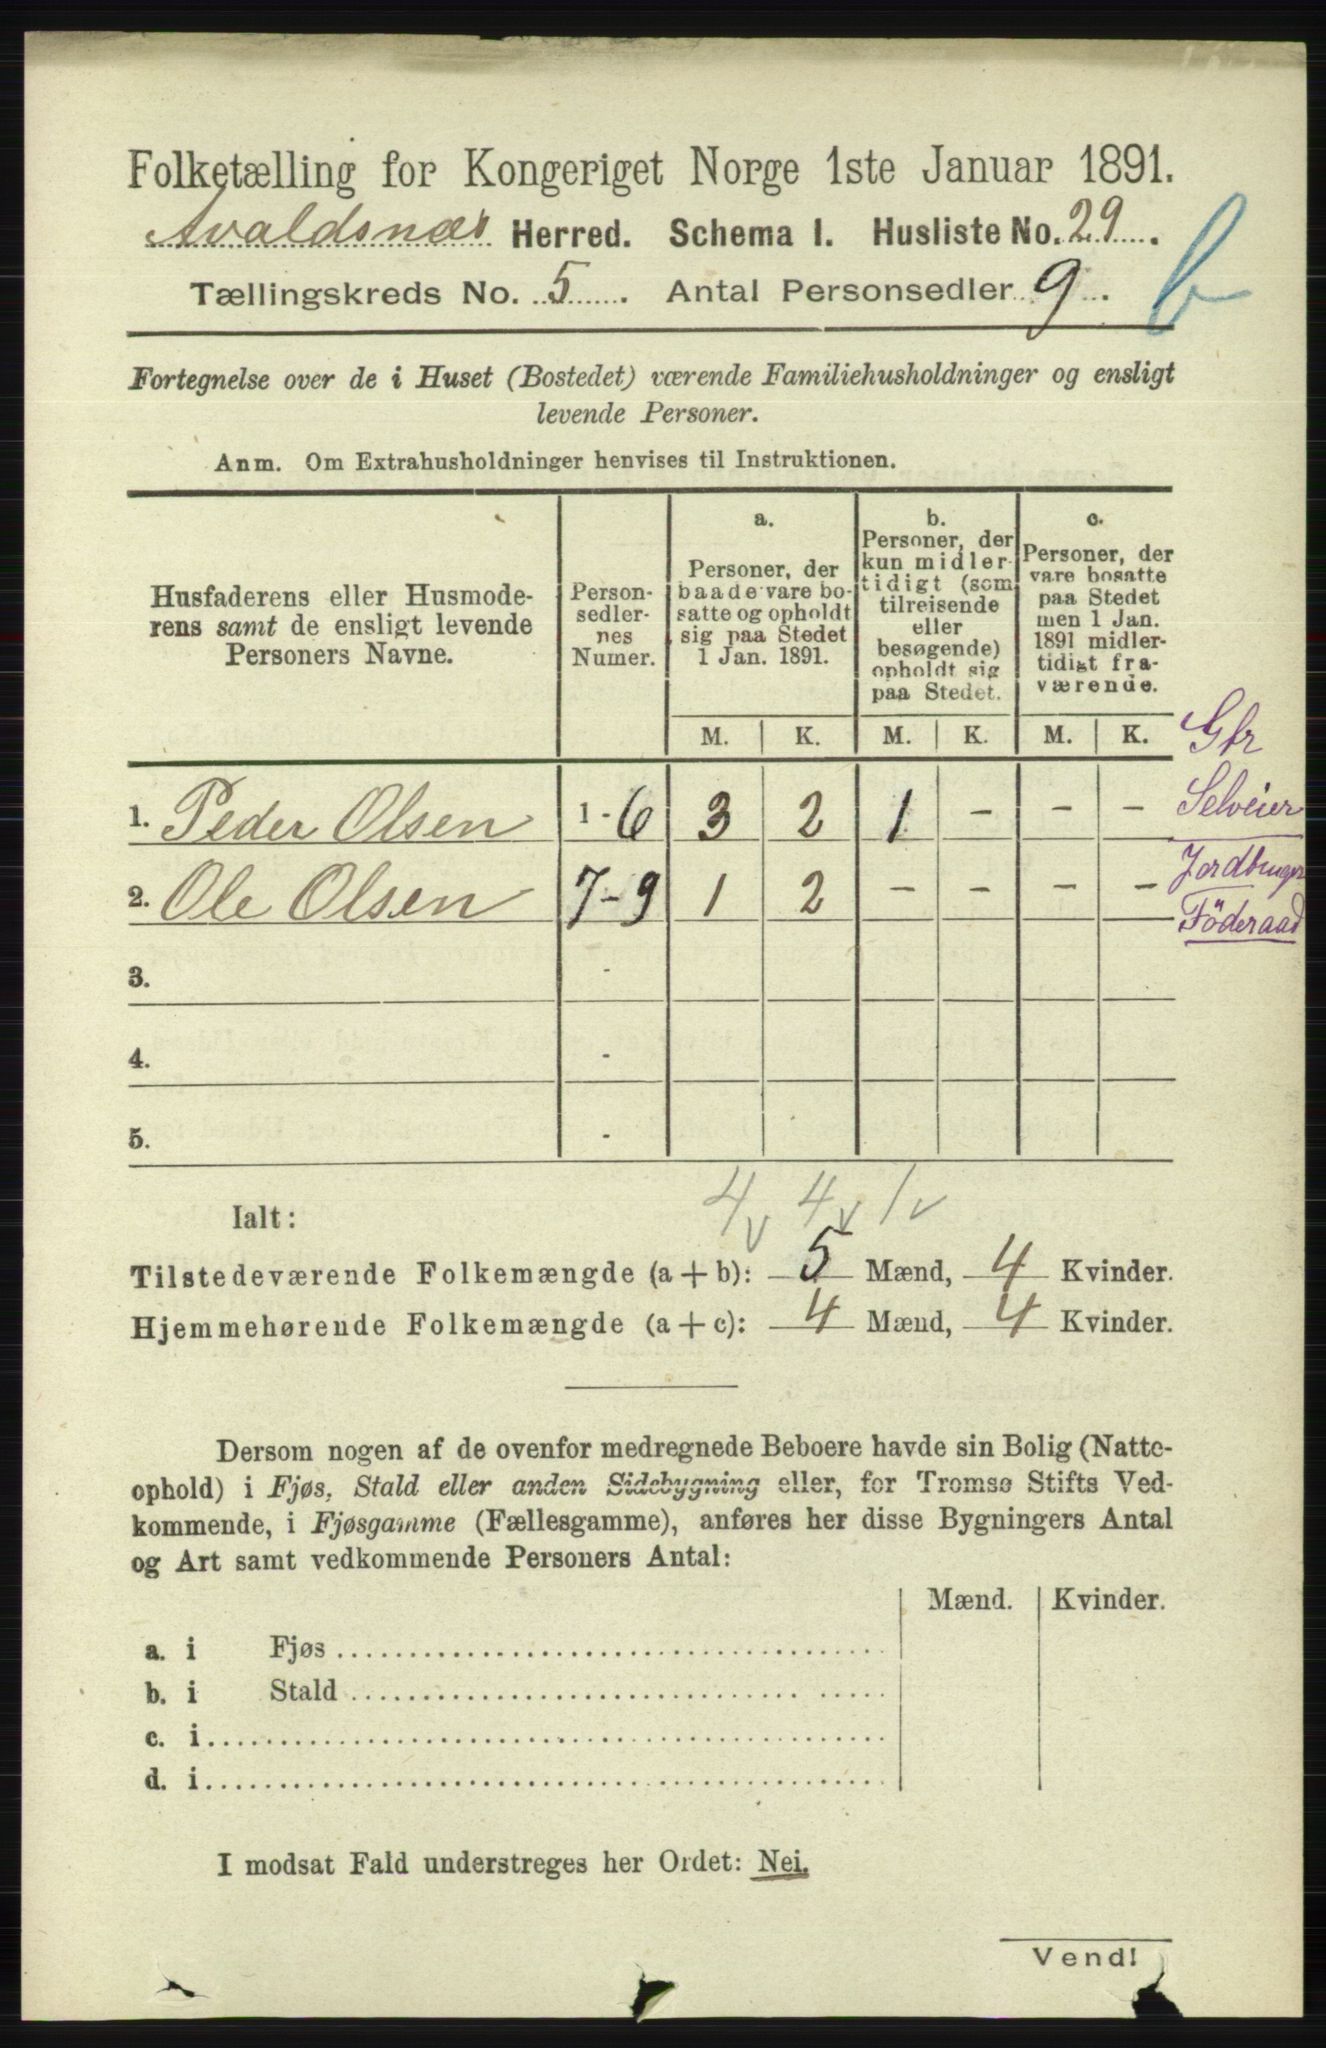 Folketælling for Kongeriget Norge 1ste Januar 1891.
Avaldsnæs Herred. Schema I. Husliste No. 29.
Tællingskreds No. 5. Antal Personsedler 9. b
Fortegnelse over de i Huset (Bostedet) værende Familiehusholdninger og ensligt
levende Personer.
Anm. Om Extrahusholdninger henvises til Instruktionen.
Husfaderens eller Husmode-
rens samt de ensligt levende
Personers Navne.
Person-
sedler-
nes
Numer.
a.
Personer, der
baade vare bo-
satte og opholdt
sig paa Stedet
1 Jan. 1891.
b.
Personer, der
kun midler-
tidigt (som
tilreisende
eller
besøgende)
opholdt sig
paa Stedet.
c.
Personer, der
vare bosatte
paa Stedet
men 1 Jan.
1891 midler-
tidigt fra-
værende.
M. K. M. K. M. K. Gfr
1. Peder Olsen 1-6 3 2 1 - - - Selveier
2. Ole Olsen 7-9 1 2 - - - - Jordbruger
Föderaad
3. -
4. -
5. -
4 4 1
Ialt:
Tilstedeværende Folkemængde (a+b): 5 Mænd, 4 Kvinder.
Hjemmehørende Folkemængde (a+c): 4 Mænd, 4 Kvinder.
Dersom nogen af de ovenfor medregnede Beboere havde sin Bolig (Natte-
ophold) i Fjøs, Stald eller anden Sidebygning eller, for Tromsø Stifts Ved-
kommende, i Fjøsgamme (Fællesgamme), anføres her disse Bygningers Antal
og Art samt vedkommende Personers Antal:
Mænd. Kvinder.
a. i Fjøs
b. i Stald
c. i
d. i
I modsat Fald understreges her Ordet: Nei.
Vend!